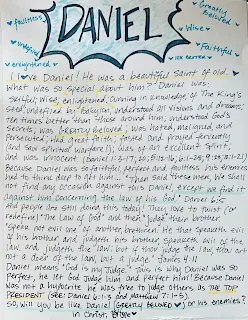 Faultless
DANIEL
Greatly
Beloved
Wise
Faithful
enlightened
10X BETTER
I love Daniel! He was a beautiful Saint of old.
What was so special about him? Daniel was
Skilful, Wise, enlightened, Cunning in Knowledge, of The King's
seed, understood all Visions and dreams,
ten times better than those around him, understood God's
Secrets, was GREATLY beloved, was hated, maligned, and
Persecuted, Had great fasted and prayed fervently
(and saw Spiritual warfare!), was of an excellent Spirit,
and was innocent
Because Daniel was So faithful, perfect and faultless, his enemies
had to think deep to get him... "Then said these men, We shall
not find any occasion against this Daniel, except we find it
against him concerning the law of his God." Daniel 6:5
and People are still doing this today! They love to twist (or
redefine) "The Law of God" and then "judge" their brother.
"Speak not evil one of another, brethren. He that speaketh evil
of his brother, and judgeth his brother, speaketh evil of the
law, and judgeth the law: but if thou judge the law, thou art
not a doer of the law, but a judge." James 4:11
Daniel means "God is my Judge". This is why Daniel was so
perfect, he let God Judge him and Perfect him! Because Daniel
was not a hypocrite he was free to judge others as THE TOP
PRESIDENT (See: Daniel 6:1-3 and Matthew 7:1-5).
So, Will you be like Daniel (Greatly beloved ♥) or his enemies?
in Christ,